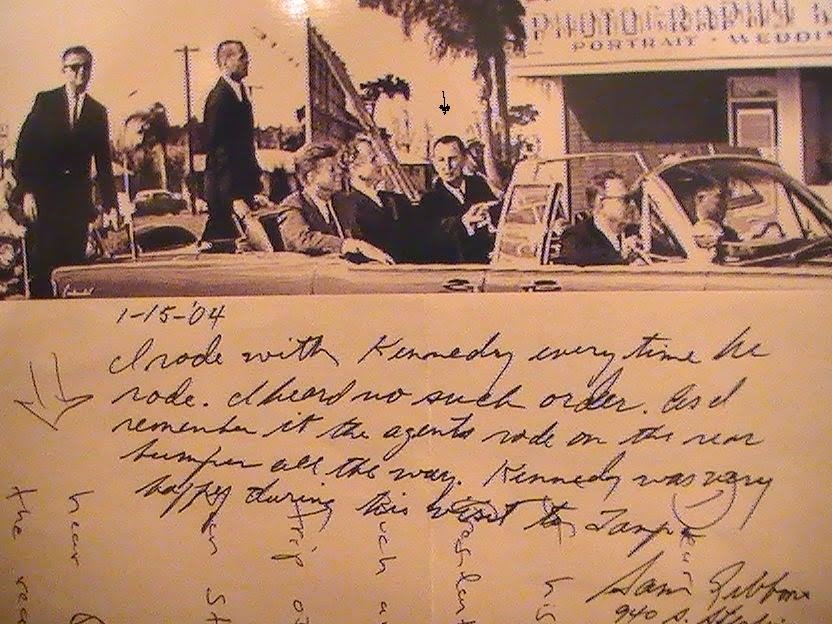 PHOTOGRAPHY
PORTRAIT - WEDDI
1-15-'04
I rode with Kennedy every time he
rode. I heard no such order. As I
remember it the agents rode on the rear
bumper all the way. Kennedy was very
happy during his visit to Tampa
Sam Gibbons
940 S.
hear
the
trip
his